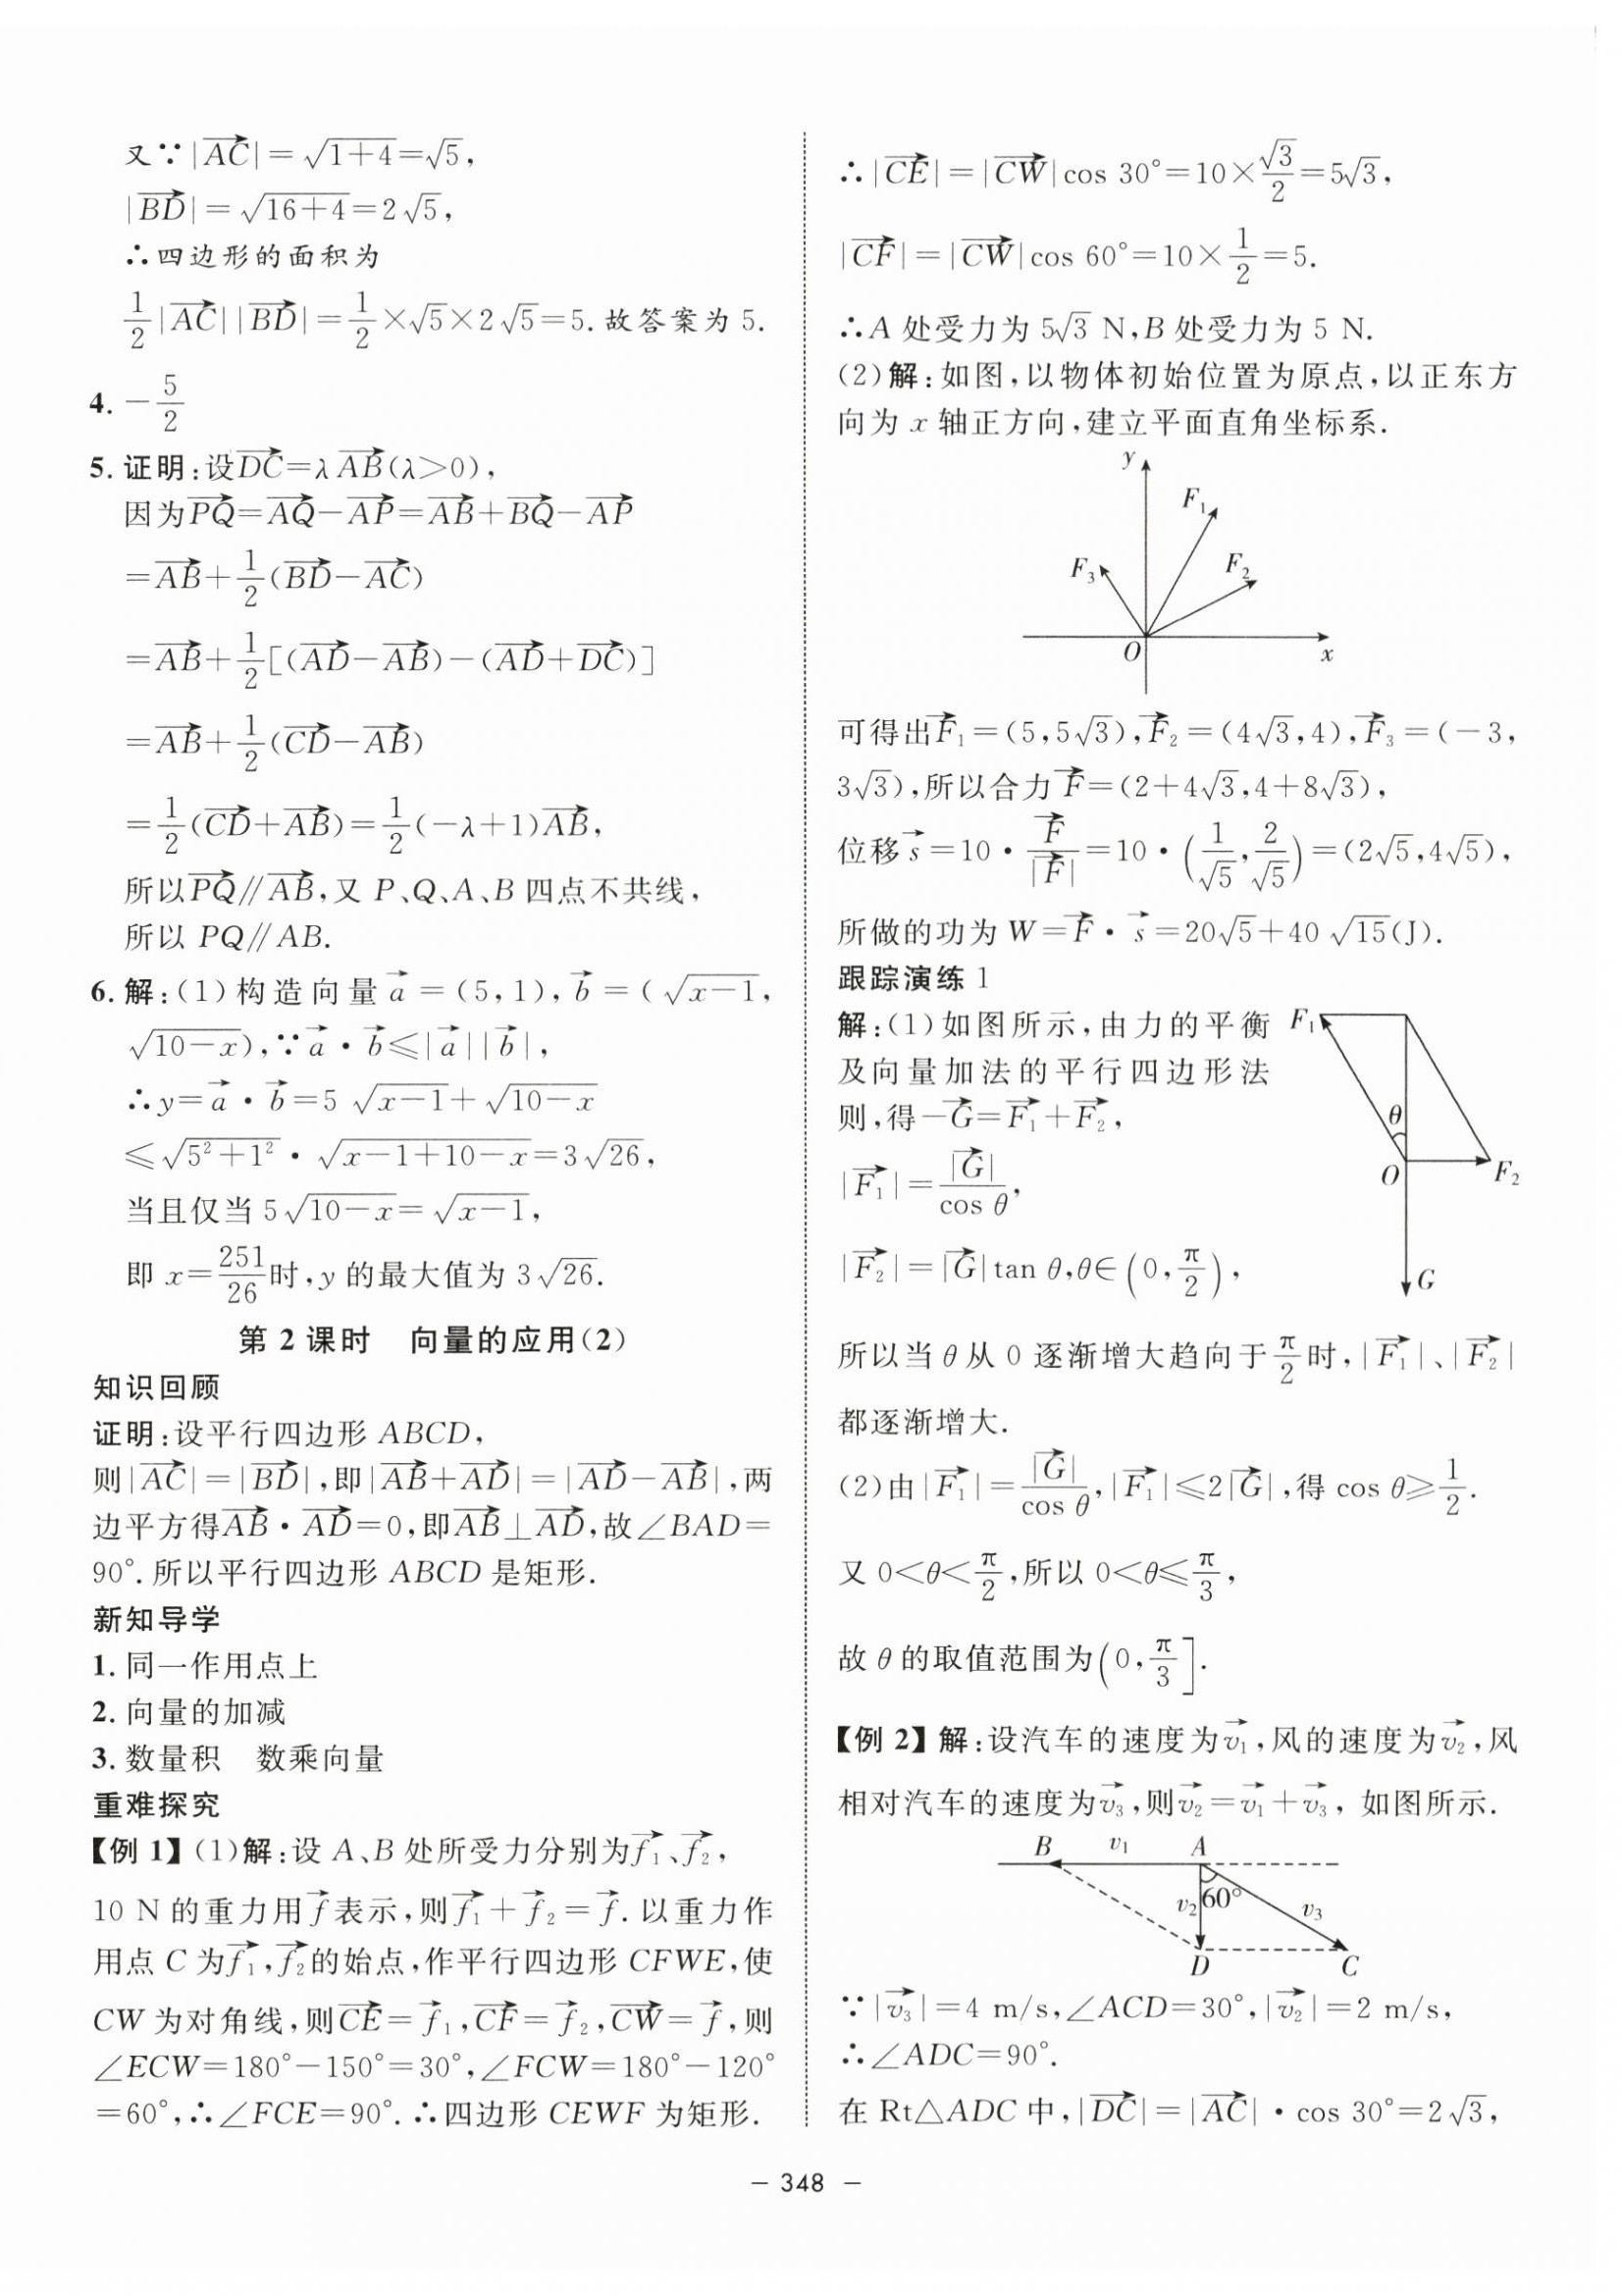 又∵|AC→|=√(1+4)=√5,
|BD→|=√(16+4)=2√5,
∴四边形的面积为
1/2|AC→||BD→|=1/2×√5×2√5=5.故答案为 5.
4. -5/2
5. 证明:设DC→=λAB→(λ>0),
因为PQ→=AQ→-AP→=AB→+BQ→-AP→
=AB→+1/2(BD→-AC→)
=AB→+1/2[(AD→-AB→)-(AD→+DC→)]
=AB→+1/2(CD→-AB→)
=1/2(CD→+AB→)=1/2(-λ+1)AB→,
所以PQ→∥AB→,又 P、Q、A、B 四点不共线,
所以 PQ∥AB.
6. 解:(1)构造向量a→=(5,1),b→=(√(x-1),
√(10-x)),∵a→·b→≤|a→||b→|,
∴y=a→·b→=5√(x-1)+√(10-x)
≤√(5²+1²)·√(x-1+10-x)=3√26,
当且仅当 5√(10-x)=√(x-1),
即 x=251/26时,y 的最大值为 3√26.
第 2 课时 向量的应用(2)
知识回顾
证明:设平行四边形 ABCD,
则|AC→|=|BD→|,即|AB→+AD→|=|AD→-AB→|,两
边平方得AB→·AD→=0,即AB→⊥AD→,故∠BAD=
90°.所以平行四边形 ABCD 是矩形.
新知导学
1. 同一作用点上
2. 向量的加减
3. 数量积 数乘向量
重难探究
【例 1】(1)解:设 A、B 处所受力分别为f₁→、f₂→,
10 N 的重力用f→表示,则f₁→+f₂→=f→.以重力作
用点 C 为f₁→,f₂→的始点,作平行四边形 CFWE,使
CW 为对角线,则CE→=f₁→,CF→=f₂→,CW→=f→,则
∠ECW=180°-150°=30°,∠FCW=180°-120°
=60°,∴∠FCE=90°.∴四边形 CEWF 为矩形.
∴|CE→|=|CW→|cos 30°=10×√3/2=5√3,
|CF→|=|CW→|cos 60°=10×1/2=5.
∴A 处受力为 5√3 N,B 处受力为 5 N.
(2)解:如图,以物体初始位置为原点,以正东方
向为 x 轴正方向,建立平面直角坐标系.
y
F₁
F₂
F₃
O
x
可得出F₁→=(5,5√3),F₂→=(4√3,4),F₃→=(-3,
3√3),所以合力F→=(2+4√3,4+8√3),
位移s→=10·F→/|F→|=10·(1/√5,2/√5)=(2√5,4√5),
所做的功为 W=F→·s→=20√5+40√15(J).
跟踪演练 1
解:(1)如图所示,由力的平衡
及向量加法的平行四边形法
则,得-G→=F₁→+F₂→,
|F₁→|=|G→|/cos θ,
|F₂→|=|G→|tan θ,θ∈(0,π/2),
F₁
θ
O
F₂
G
所以当 θ 从 0 逐渐增大趋向于π/2时,|F₁→|、|F₂→|
都逐渐增大.
(2)由|F₁→|=|G→|/cos θ,|F₁→|≤2|G→|,得 cos θ≥1/2.
又 0<θ<π/2,所以 0<θ≤π/3,
故 θ 的取值范围为(0,π/3].
【例 2】解:设汽车的速度为v₁→,风的速度为v₂→,风
相对汽车的速度为v₃→,则v₂→=v₁→+v₃→,如图所示.
B v₁ A
v₂ 60° v₃
D C
∵|v₃→|=4 m/s,∠ACD=30°,|v₂→|=2 m/s,
∴∠ADC=90°.
在 Rt△ADC 中,|DC→|=|AC→|·cos 30°=2√3,
— 348 —